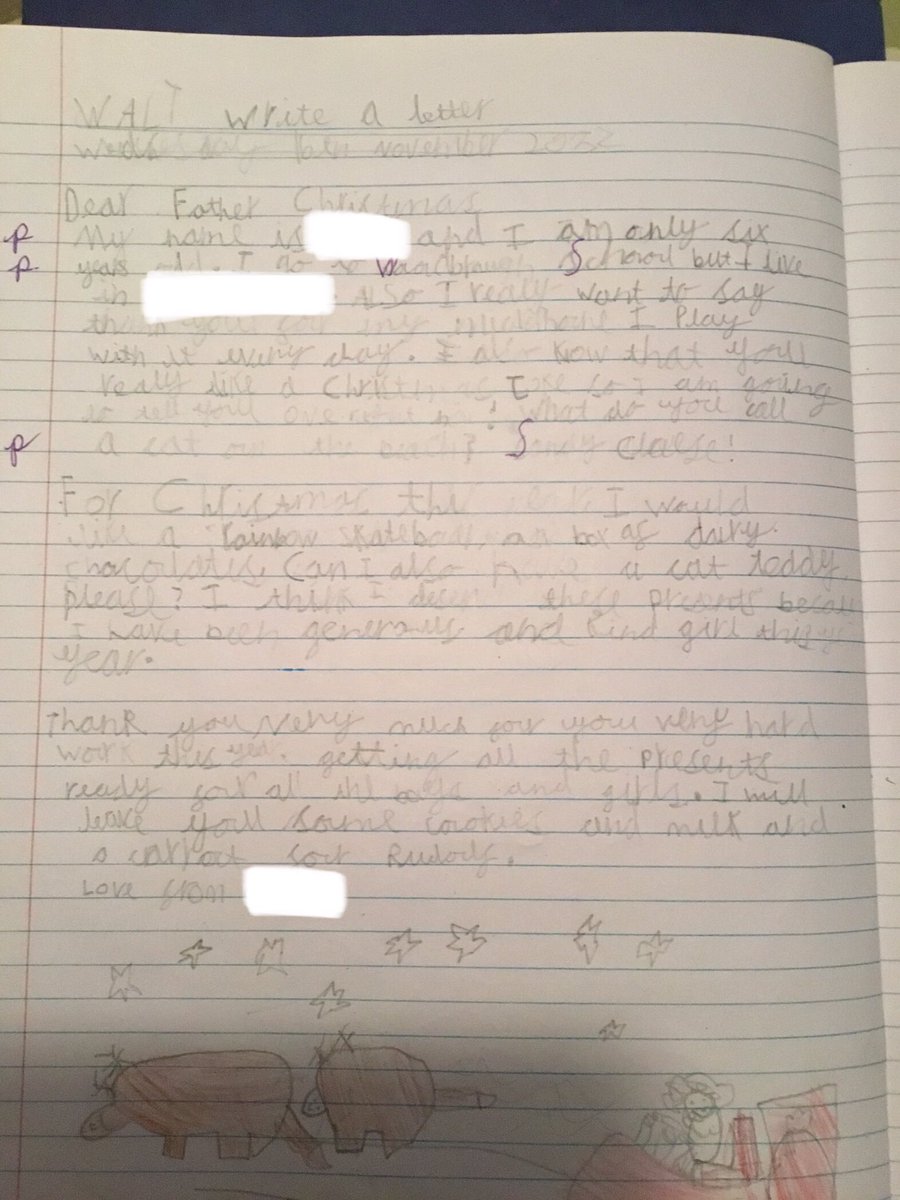 WALT write a letter
Wednesday 16th November 2022
Dear Father Christmas
p My name is and I am only six
p years old. I go to School but I live
in . Also I really want to say
thank you for my I Play
with it every day. I also know that youll
really like a Christmas Joke so I am going
to tell you ! What do you call
p a cat on the beach? Sandy Clalse!
For Christmas this year I would
like a rainbow skateboard, a box of dairy
chocolates. Can I also have a cat teddy
please? I think I these presents
I have been generous and kind girl this
year.
Thank you very much for your very hard
work this year. getting all the presents
ready for all the boys and girls. I will
leave youll some cookies and milk and
a carrot for Rudolf.
Love from